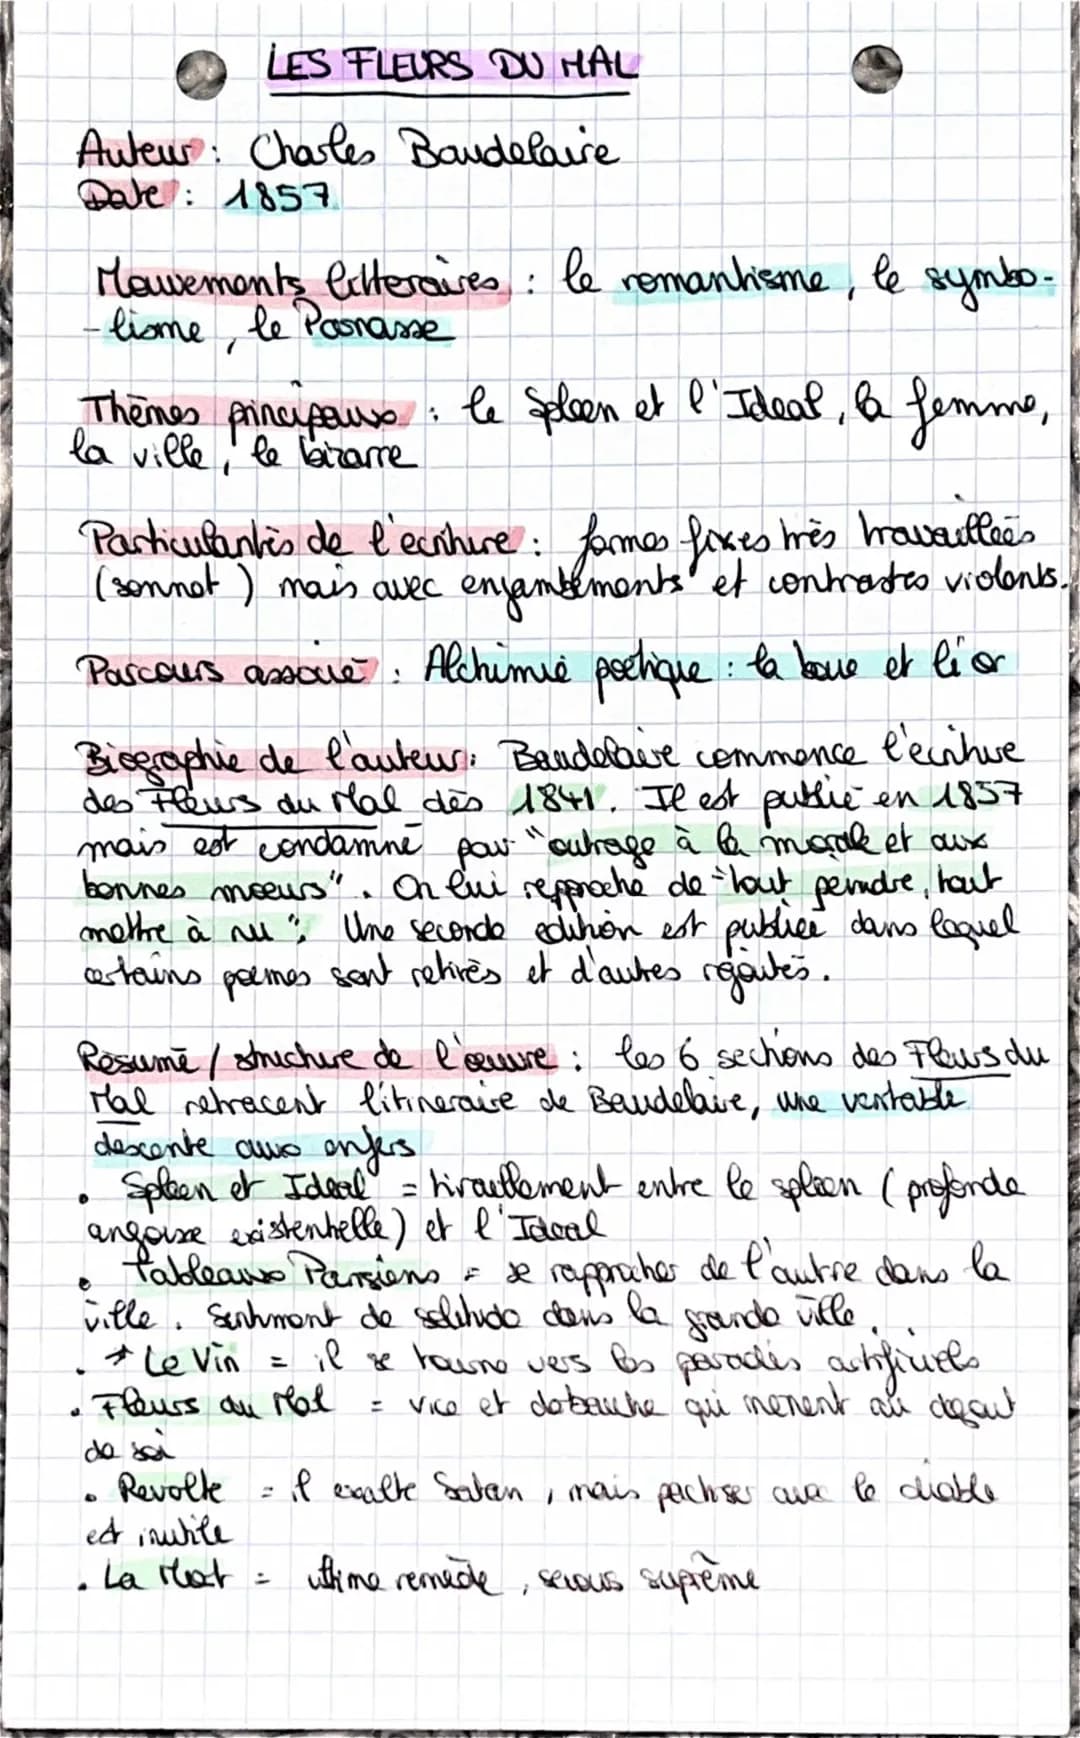 LES FLEURS DU MAL
Auteur : Charles Baudelaire
Date : 1857
Mouvements litteraires : le romantisme, le symbo-
-lisme, le Parnasse
Thèmes principaux : le Spleen et l'Ideal, la femme,
la ville, le bizarre
Particularités de l'ecriture : formes fixes très travaillées
(sonnet) mais avec enjambements et contrastes violents.
Parcours associé : Alchimie poétique : la boue et l'or
Biographie de l'auteur : Baudelaire commence l'ecriture
des Fleurs du Mal dès 1841. Il est publié en 1857
mais est condamné pour "outrage à la morale et aux
bonnes moeurs". On lui repproche de "tout peindre, tout
mettre à nu". Une seconde edition est publiée dans lequel
certains poemes sont retirés et d'autres rajoutés.
Resumé / structure de l'œuvre : les 6 sections des Fleurs du
Mal retracent l'itineraire de Baudelaire, une veritable
descente aux enfers
• Spleen et Ideal = tiraillement entre le spleen (profonde
angoisse existentielle) et l'Ideal
• Tableaux Parisiens = se rapprocher de l'autre dans la
ville. Sentiment de solitude dans la grande ville.
• * Le Vin = il se tourne vers les paradis artificiels
• Fleurs du Mal = vice et debauche qui menent au degout
de soi
• Revolte = il exalte Satan, mais pactiser avec le diable
est inutile
• La Mort = ultime remède, secours suprême